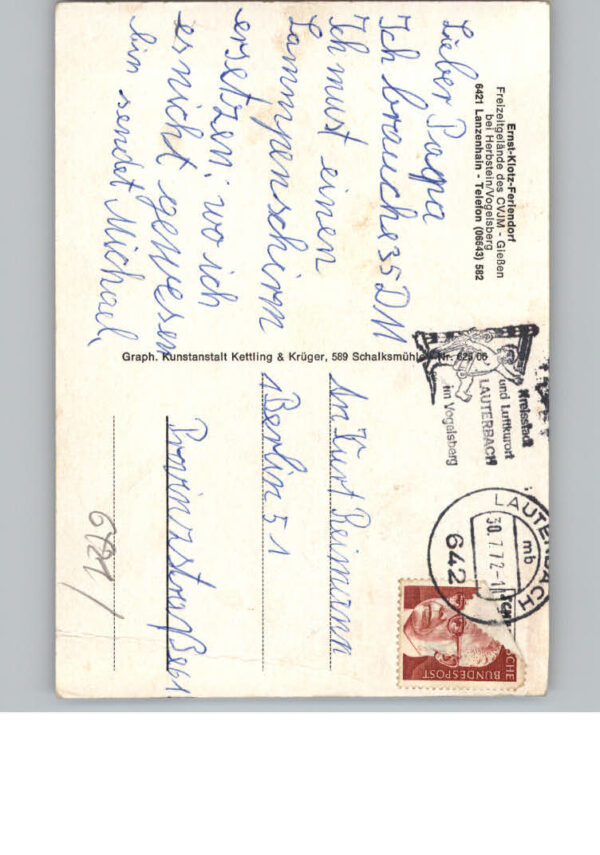 Ernst-Klotz-Feriendorf
Freizeitgelände des CVJM - Gießen
bei Herbstein/Vogelsberg
6421 Lanzenhain - Telefon (06643) 582
Lieber Papa
Ich brauche 35 DM
Ich must einen
Lammpenschirm
ersetzen, wo ich
es nicht gewesen
bin sendet Michael
Graph. Kunstanstalt Kettling & Krüger, 589 Schalksmühle Nr. 629 06
Kreisstadt
und Luftkurort
LAUTERBACH
im Vogelsberg
LAUTERBACH
mb
30.7.72-1
642
BUNDESPOST
An Kurt Reimann
1 Berlin 51
Provinzstraße 61
6421